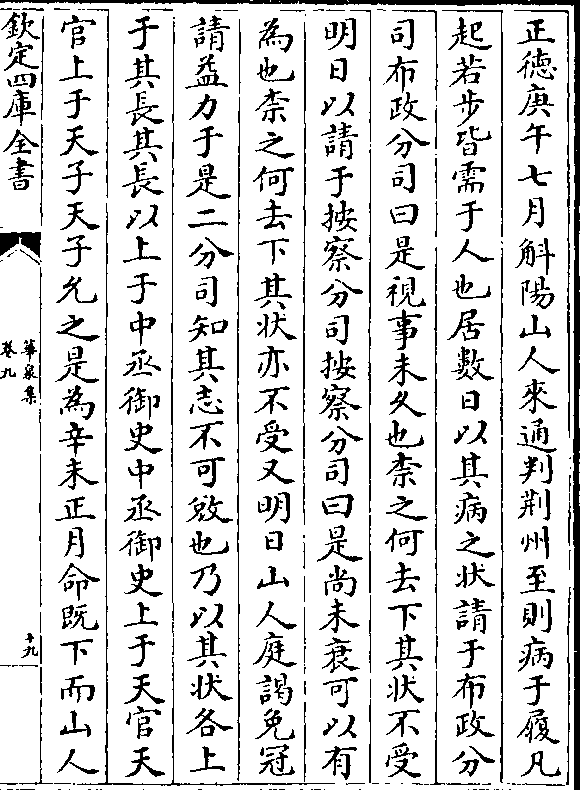 正德庚午七月斛陽山人來通判荆州至則病于履凡
起若步皆需于人也居數日以其病之狀請于布政分
司布政分司曰是視事未久也柰之何去下其狀不受
明日以請于按察分司按察分司曰是尚未衰可以有
為也柰之何去下其狀亦不受又明日山人庭謁免冠
請益力于是二分司知其志不可敓也乃以其狀各上
于其長其長以上于中丞御史中丞御史上于天官天
官上于天子天子允之是為辛未正月命既下而山人
欽定四庫全書
華泉集
卷九
十九